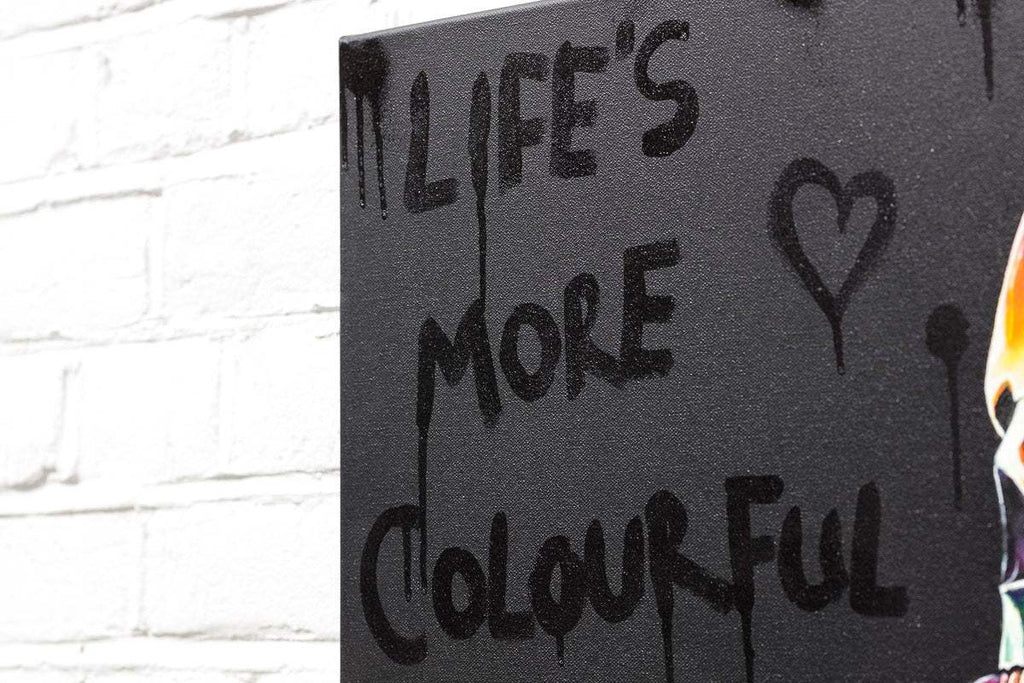 LIFE'S
MORE
COLOURFUL